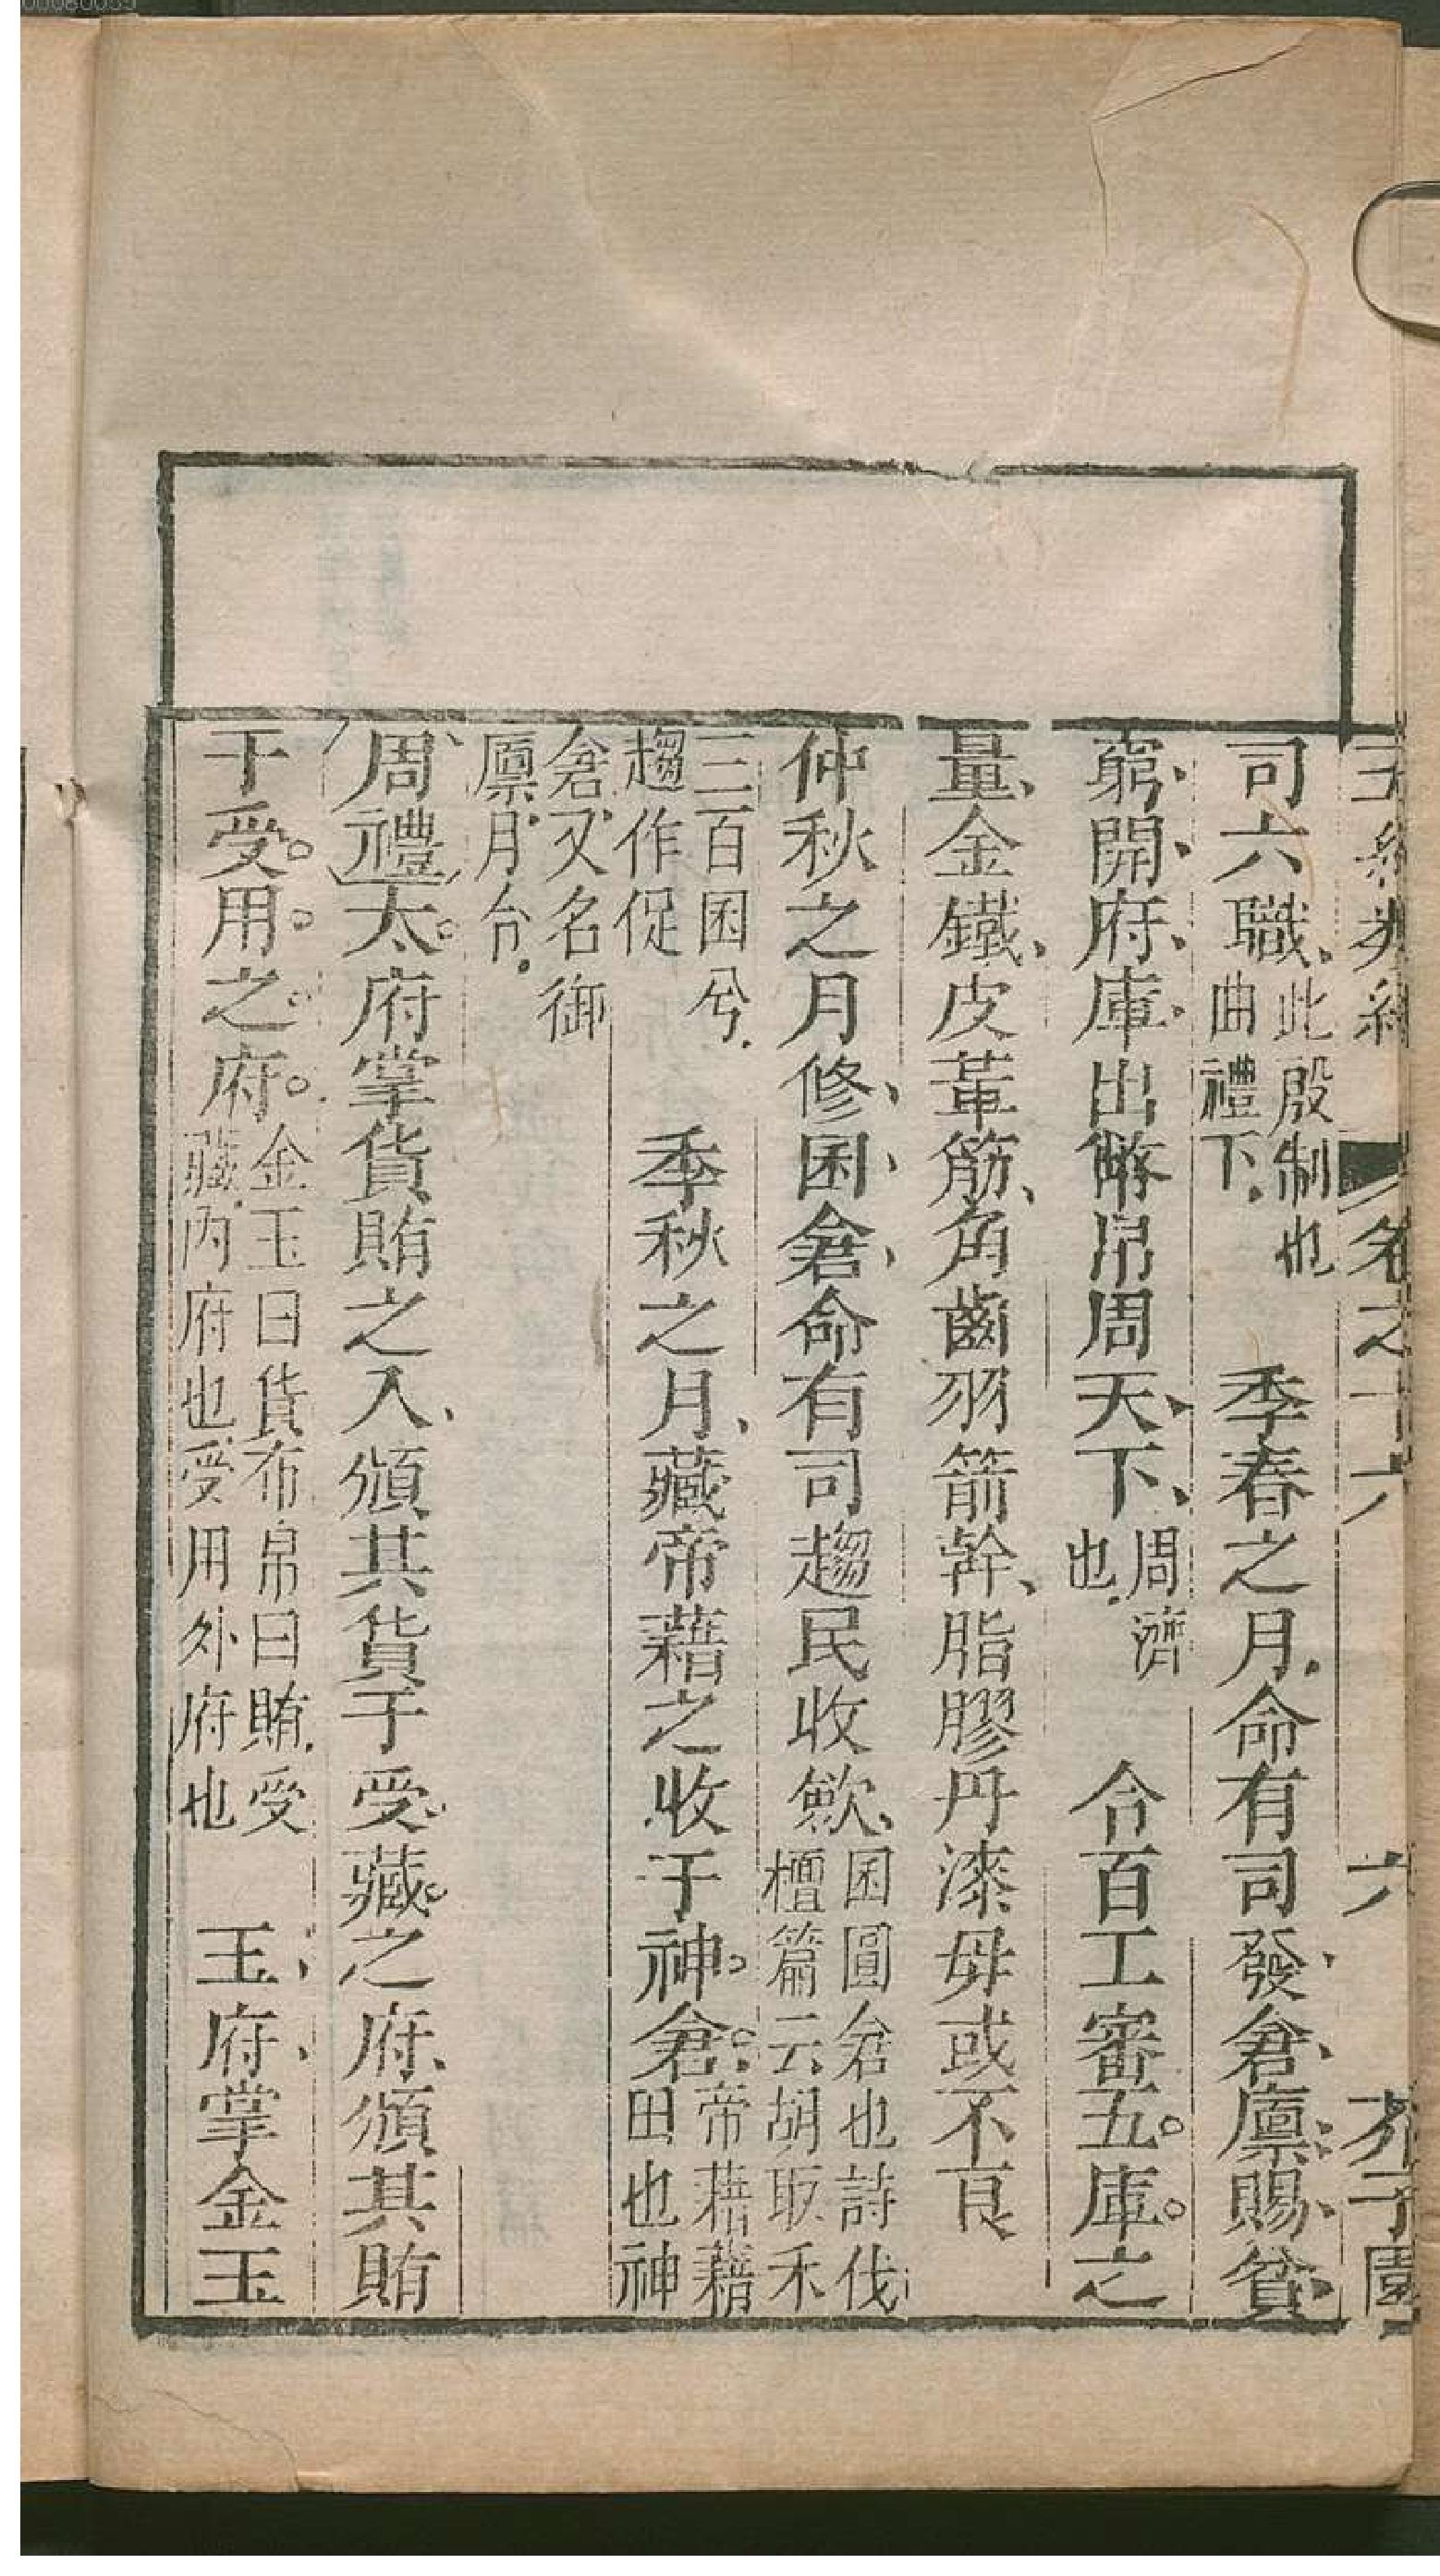 五經類編 卷之十六 六 芥子園
司六職、此殷制也曲禮下。 季春之月、命有司發倉廩、賜貧
窮、開府庫、出幣帛周天下、周濟也。 令百工審五庫之
量、金鐵、皮革筋、角齒羽箭幹、脂膠丹漆毋或不良
仲秋之月修囷倉、命有司趨民收歛、囷圓倉也詩伐檀篇云胡取禾
三百囷兮。趨作促 季秋之月、藏帝藉之收于神倉。帝藉藉田也神
倉又名御廩月令。
周禮太府掌貨賄之入、頒其貨于受藏之府、頒其賄
于受用之府。金玉曰貨布帛曰賄。受藏內府也受用外府也 玉府、掌金玉